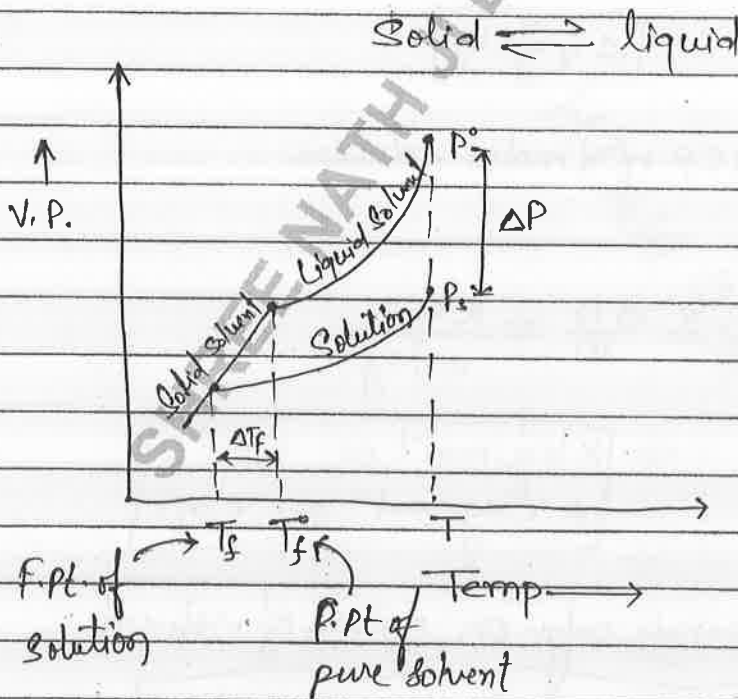 Solid ⇌ liquid
V.P.
P°
ΔP
Liquid Solvent
Ps
Solution
Solid Solvent
ΔTf
Tf T°f T
F.pt. of
solution
F.pt of
pure solvent
Temp
SHREE NATH JI